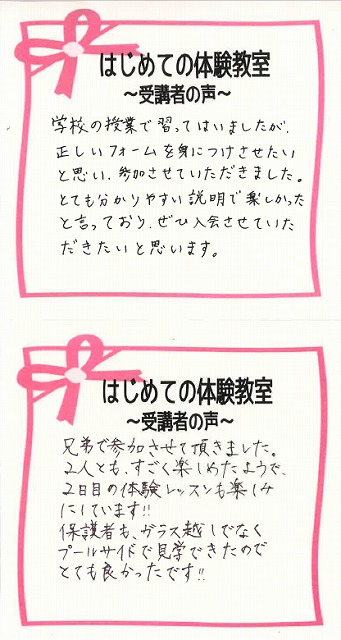 はじめての体験教室
～受講者の声～
学校の授業で習ってはいましたが、
正しいフォームを身につけさせたい
と思い、参加させていただきました。
とても分かりやすい説明で楽しかった
と言っており、ぜひ入会させていた
だきたいと思います。
はじめての体験教室
～受講者の声～
兄弟で参加させて頂きました。
2人とも、すごく楽しめたようで、
2日目の体験レッスンも楽しみ
にしています!!
保護者も、ガラス越しでなく
プールサイドで見学できたので
とても良かったです!!